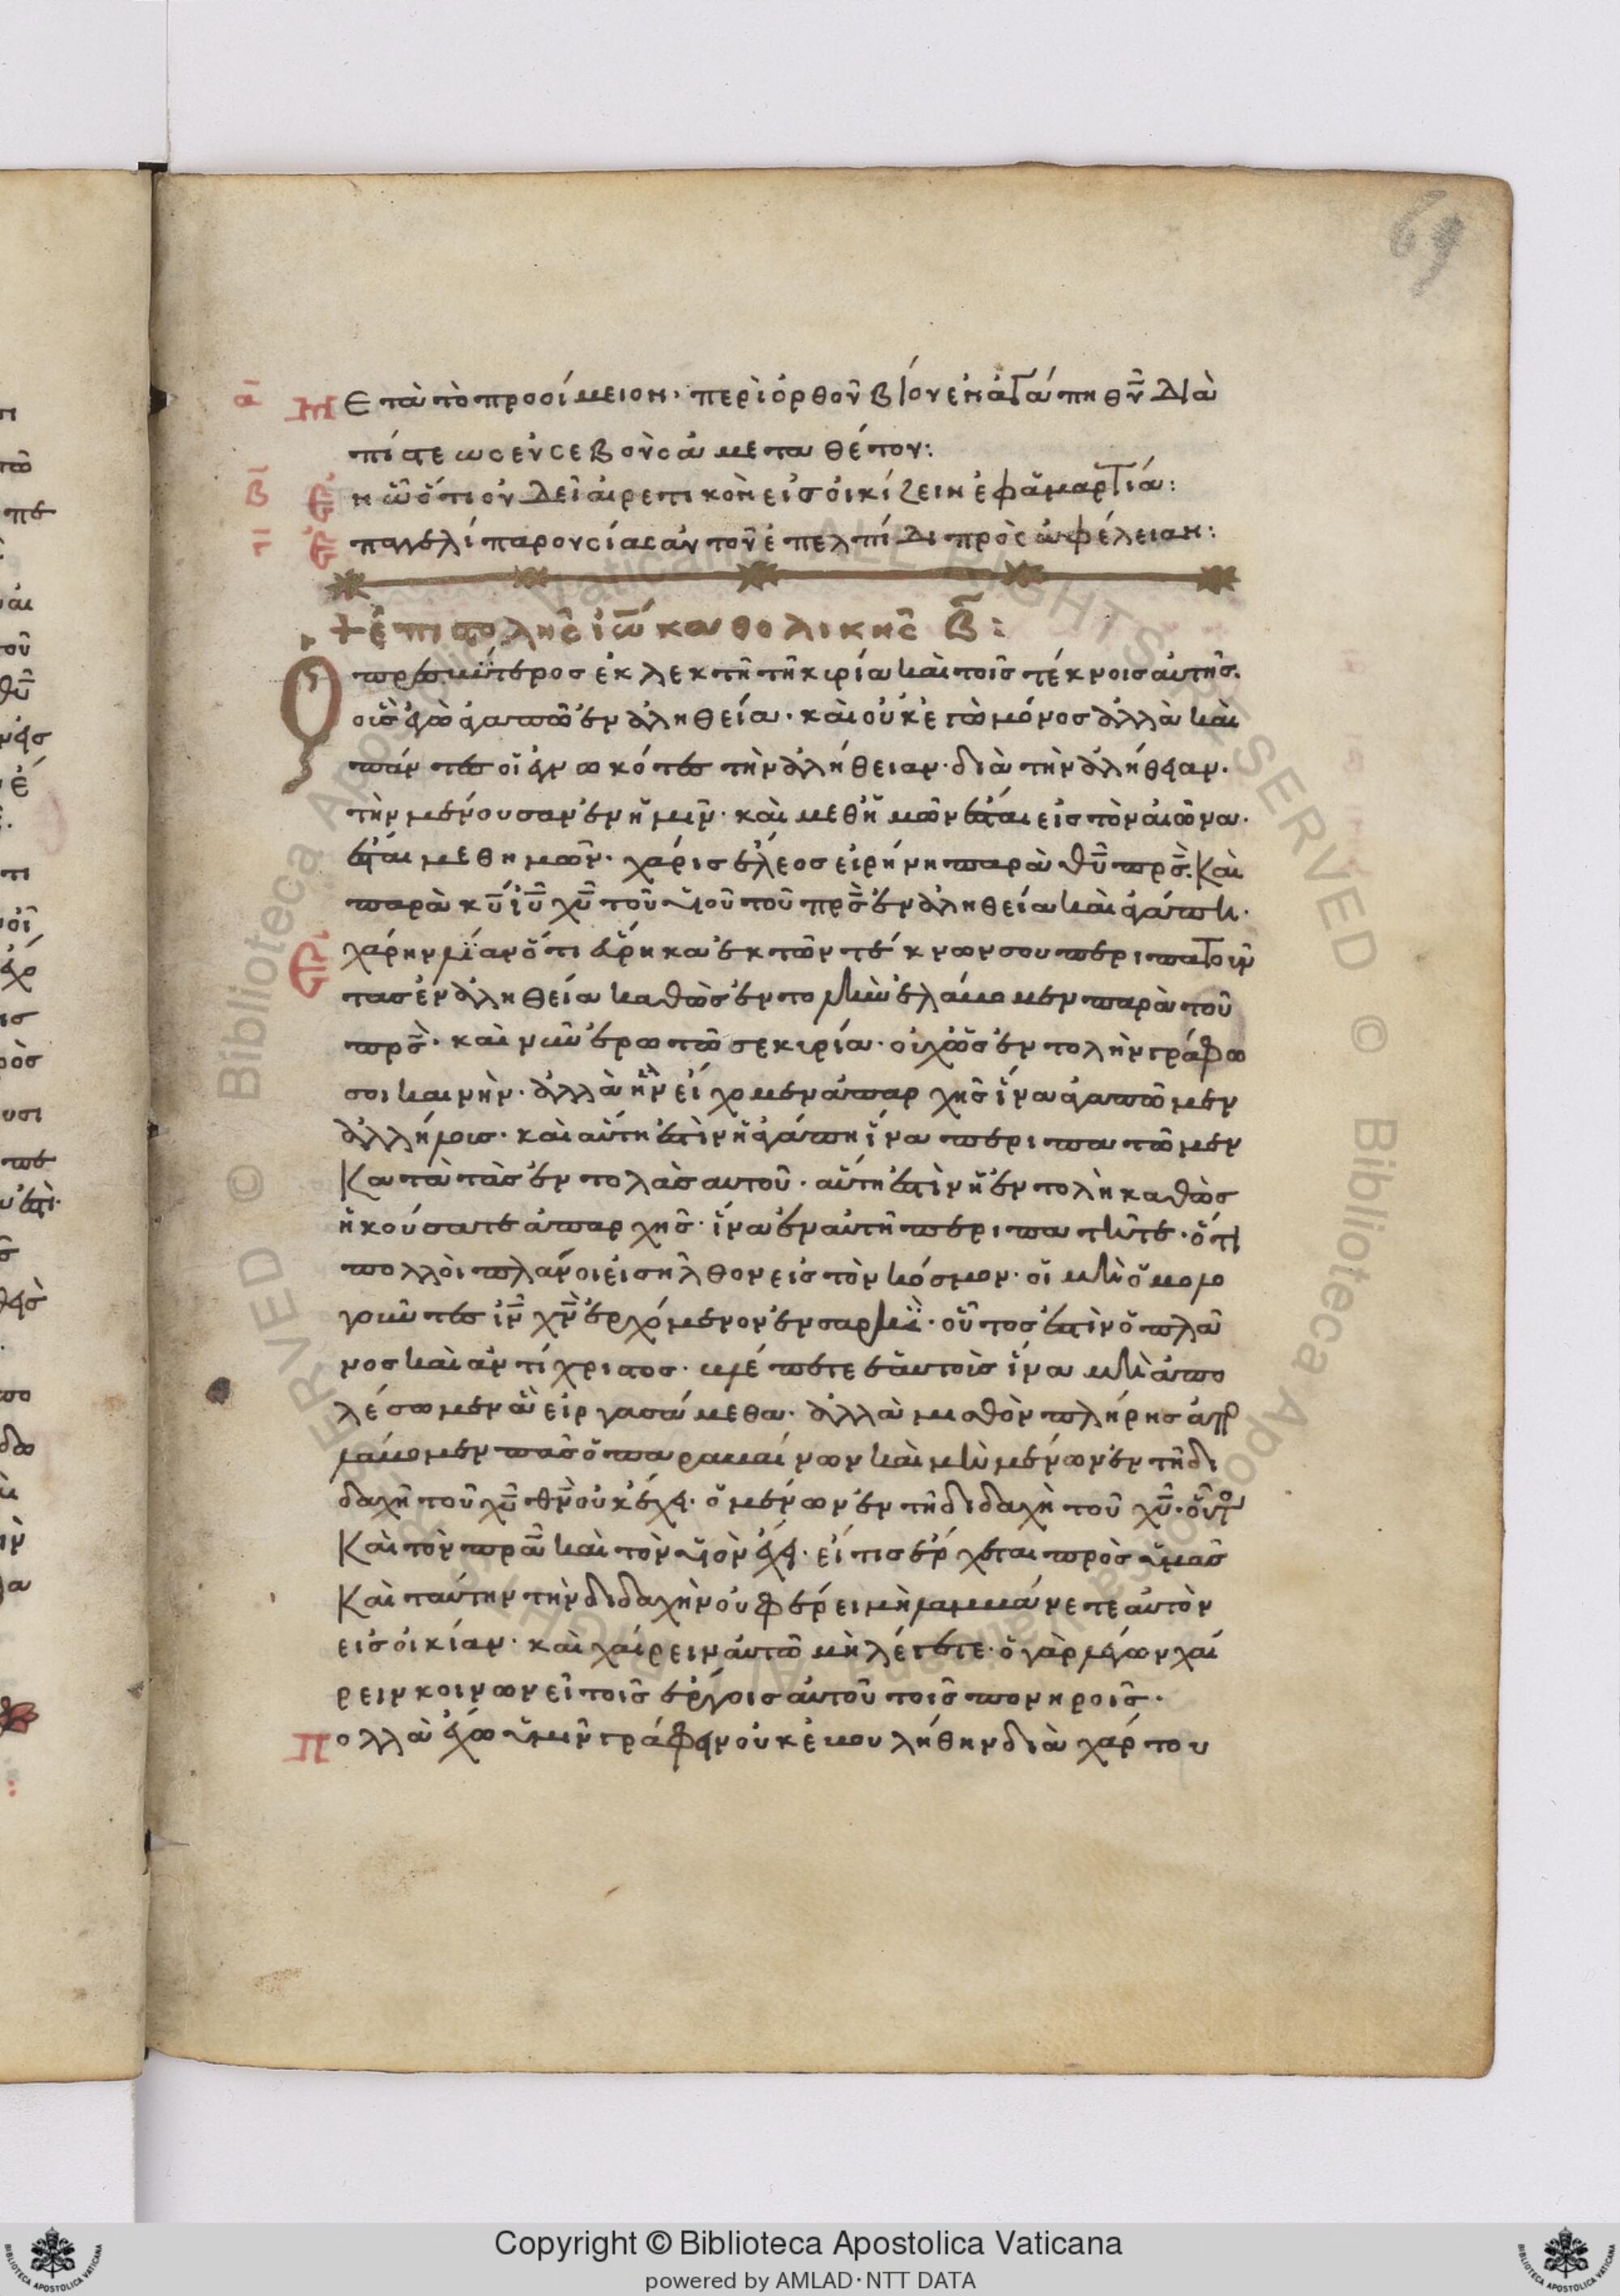 69
ᾱ Μετὰ τὸ προοίμειον· περὶ ὀρθοῦ βίου ἐν ἀγάπη θῦ διὰ
πίστεως ἐυσεβοὺς ἀμεταθέτου:
β̄ Ἐν ὧ ὅτι οὐ δεῖ αἱρετικὸν εἰσοικίζειν ἐφ ἁμαρτία:
γ̄ Ἐπαγγελί παρουσίας ἀυτοῦ ἐπελπίδι πρὸς ὠφέλειαν:
+ ἐπιστολῆς ἰω̄ καθολικῆς β̄:
Ὁ πρεσβύτερος ἐκλεκτῆ τῆ κιρία καὶ τοῖς τέκνοις ἀυτῆς.
οὓς ἐγὼ ἀγαπῶ ἐν ἀληθεία· καὶ οὐκ ἐγὼ μόνος ἀλλὰ καὶ
πάντες οἱ ἐγνωκότες τὴν ἀλήθειαν· διὰ τὴν ἀλήθειαν·
τὴν μένουσαν ἐν ἡμῖν· καὶ μεθ ἡμῶν ἔσται εἰς τὸν αἰῶνα·
ἔσται μεθ ημῶν· χάρις ἔλεος εἰρήνη παρὰ θῦ πρς̄. Καὶ
παρὰ κῦ ἰῦ χῦ τοῦ υἱοῦ τοῦ πρς̄ ἐν ἀληθεία καὶ ἀγάπη·
Ἐχάρην λίαν ὅτι εὕρηκα ἐκ τῶν τέκνων σου περιπατοῦν
τας ἐν ἀληθεία καθὼς ἐντολὴν ἐλάβομεν παρὰ τοῦ
πρς̄· καὶ νῦν ἐρωτῶ σε κιρία· οὐχ ὡς ἐντολὴν γράφω
σοι καινὴν· ἀλλὰ ἣν εἴχομεν ἀπαρχῆς ἵνα ἀγαπῶμεν
ἀλλήλοις· καὶ αὕτη ἐστὶν ἡ ἀγάπη ἵνα περιπατῶμεν
Κατὰ τὰς ἐντολὰς αυτοῦ· αὕτη ἐστὶν ἡ ἐντολὴ καθὼς
ἠκούσατε ἀπαρχῆς· ἵνα ἐν αὐτῆ περιπατῆτε· ὅτι
πολλὸι πλάνοι εἰσῆλθον εἰς τὸν κόσμον· οἱ μὴ ὁμολο
γοῦντες ἰν̄ χν̄ ἐρχόμενον ἐν σαρκὶ· οὗτος ἐστὶν ὁ πλά
νος καὶ ἀντίχριστος· βλέπετε ἑαυτοὶς ἵνα μὴ ἀπο
λέσωμεν ἃ εἰργασάμεθα· ἀλλὰ μισθὸν πλήρης ἀπο
λάβομεν πᾶς ὁ παραβαίνων καὶ μὴ μένων ἐν τῆ δι
δαχῆ τοῦ χῦ θν̄ οὐκ ἔχει· ὁ μένων ἐν τῆ διδαχὴ τοῦ χῦ· οὗτο
Καὶ τὸν πρᾱ καὶ τὸν υἱὸν ἔχει· εἴ τις ἔρχεται πρὸς ὑμᾶς
Καὶ ταύτην τὴν διδαχὴν οὐ φέρει μὴ λαμβάνετε ἀυτὸν
εἰς ὀικίαν· καὶ χαίρειν ἀυτῶ μὴ λέγετε· ὁ γὰρ λέγων χαί
ρειν κοινωνεῖ τοῖς ἔργοις ἀυτοῦ τοῖς πονηροῖς·
Πολλὰ ἔχω ὑμῖν γράφειν οὐκ ἐβουλήθην διὰ χάρτου
Copyright © Biblioteca Apostolica Vaticana
powered by AMLAD·NTT DATA